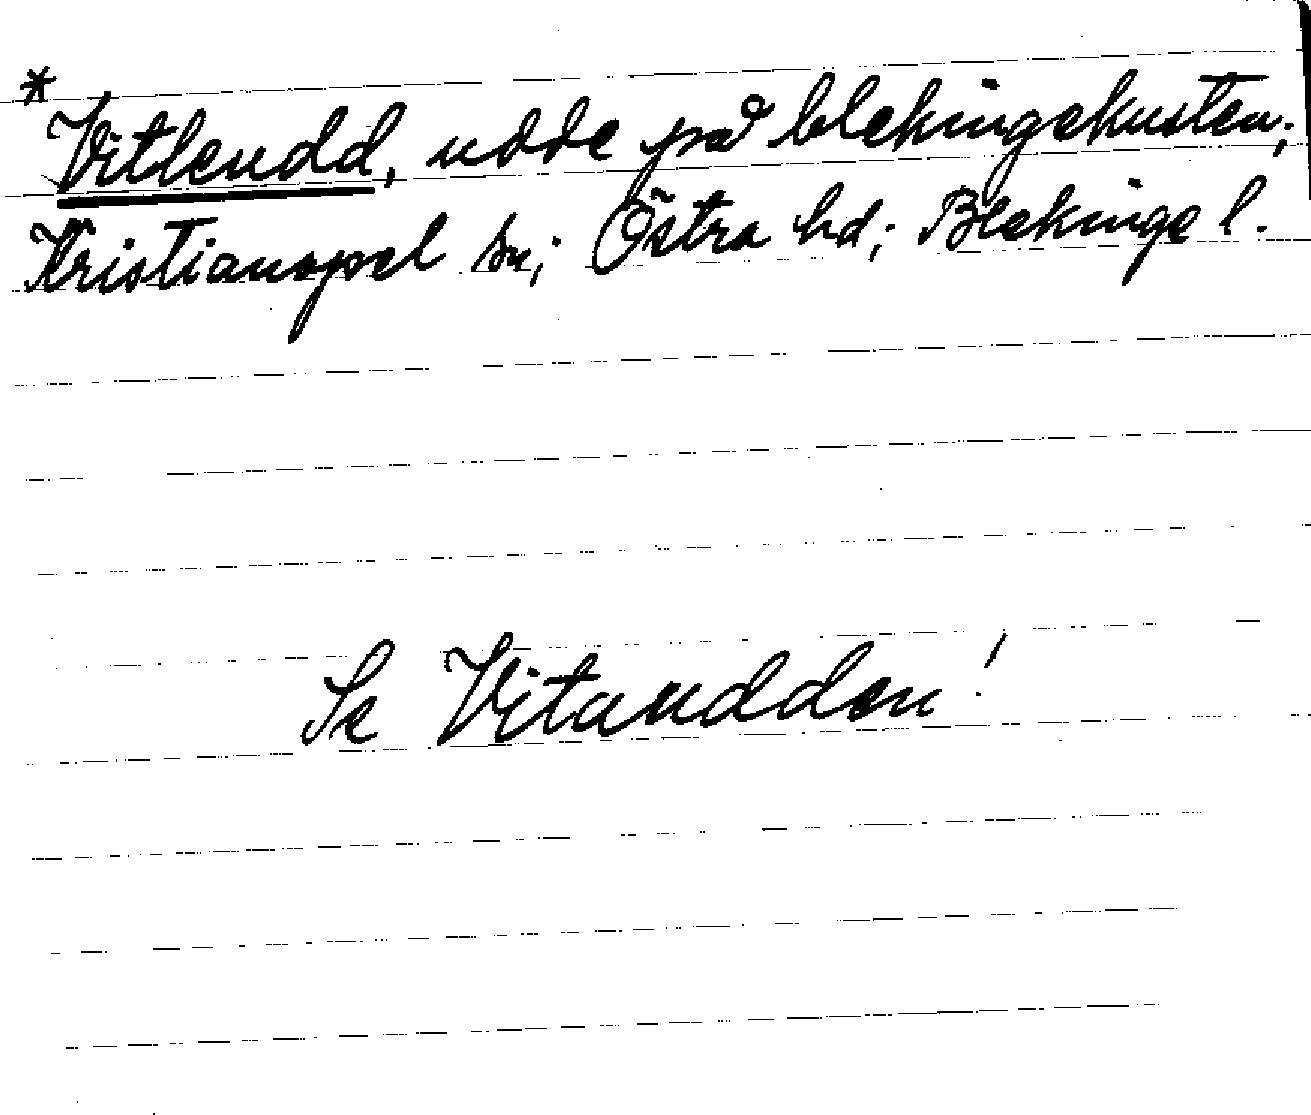 * Vitleudd, udde på blekingekusten;
Kristianopel sn; Östra hd; Blekinge l.
Se Vitaudden!